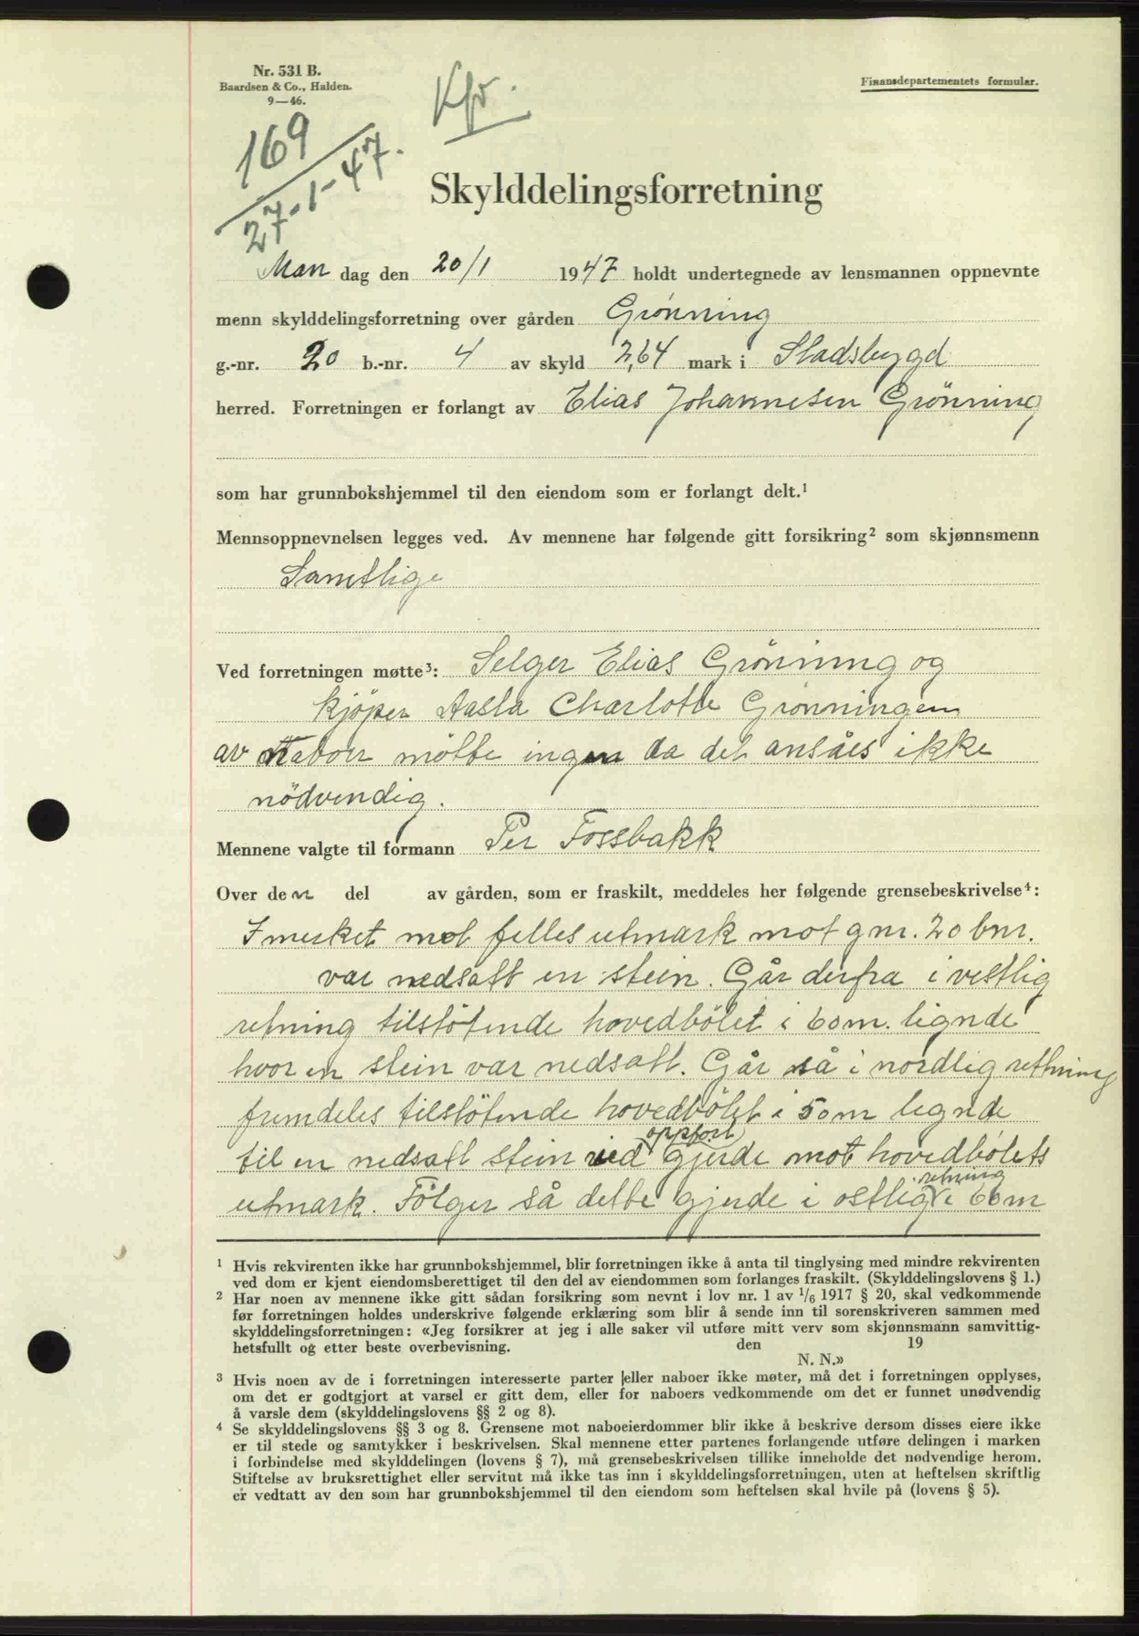 Nr. 531 B.
Baardsen & Co., Halden.
9—46.
Kfr.
Finansdepartementets formular.
169
27-1-47.
Skylddelingsforretning
Man dag den 20/1 1947 holdt undertegnede av lensmannen oppnevnte
menn skylddelingsforretning over gården Grønning
g.-nr. 20 b.-nr. 4 av skyld 2,64 mark i Stadsbygd
herred. Forretningen er forlangt av Elias Johannesen Grönning
som har grunnbokshjemmel til den eiendom som er forlangt delt.¹
Mennsoppnevnelsen legges ved. Av mennene har følgende gitt forsikring² som skjønnsmenn
Samtlige
Ved forretningen møtte³: Selger Elias Grönning og
kjöper Aasta Charlotte Grönningen
av nabou mötte ingen da det ansåes ikke
nödvendig.
Mennene valgte til formann Per Fossbakk
Over den del av gården, som er fraskilt, meddeles her følgende grensebeskrivelse⁴:
I merket mot felles utmark mot gnr. 20 bnr.
var nedsatt en stein. Går derfra i vestlig
retning tilstötende hovedbölet i 60m. lignde
hvor en stein var nedsatt. Går så i nordlig rettning
fremdeles tilstötende hovedbölet i 50m legnde
til en nedsatt stein ved oppfört gjerde mot hovedbölets
utmark. Fölger så dette gjerde i ostlig retning i 66m
¹ Hvis rekvirenten ikke har grunnbokshjemmel, blir forretningen ikke å anta til tinglysing med mindre rekvirenten
ved dom er kjent eiendomsberettiget til den del av eiendommen som forlanges fraskilt. (Skylddelingslovens § 1.)
² Har noen av mennene ikke gitt sådan forsikring som nevnt i lov nr. 1 av 1/6 1917 § 20, skal vedkommende
før forretningen holdes underskrive følgende erklæring som blir å sende inn til sorenskriveren sammen med
skylddelingsforretningen: «Jeg forsikrer at jeg i alle saker vil utføre mitt verv som skjønnsmann samvittig-
hetsfullt og etter beste overbevisning. den 19
N. N.»
³ Hvis noen av de i forretningen interesserte parter eller naboer ikke møter, må det i forretningen opplyses,
om det er godtgjort at varsel er gitt dem, eller for naboers vedkommende om det er funnet unødvendig
å varsle dem (skylddelingslovens §§ 2 og 8).
⁴ Se skylddelingslovens §§ 3 og 8. Grensene mot naboeierdommer blir ikke å beskrive dersom disses eiere ikke
er til stede og samtykker i beskrivelsen. Skal mennene etter partenes forlangende utføre delingen i marken
i forbindelse med skylddelingen (lovens § 7), må grensebeskrivelsen tillike inneholde det nødvendige herom.
Stiftelse av bruksrettighet eller servitut må ikke tas inn i skylddelingsforretningen, uten at heftelsen skriftlig
er vedtatt av den som har grunnbokshjemmel til den eiendom som heftelsen skal hvile på (lovens § 5).